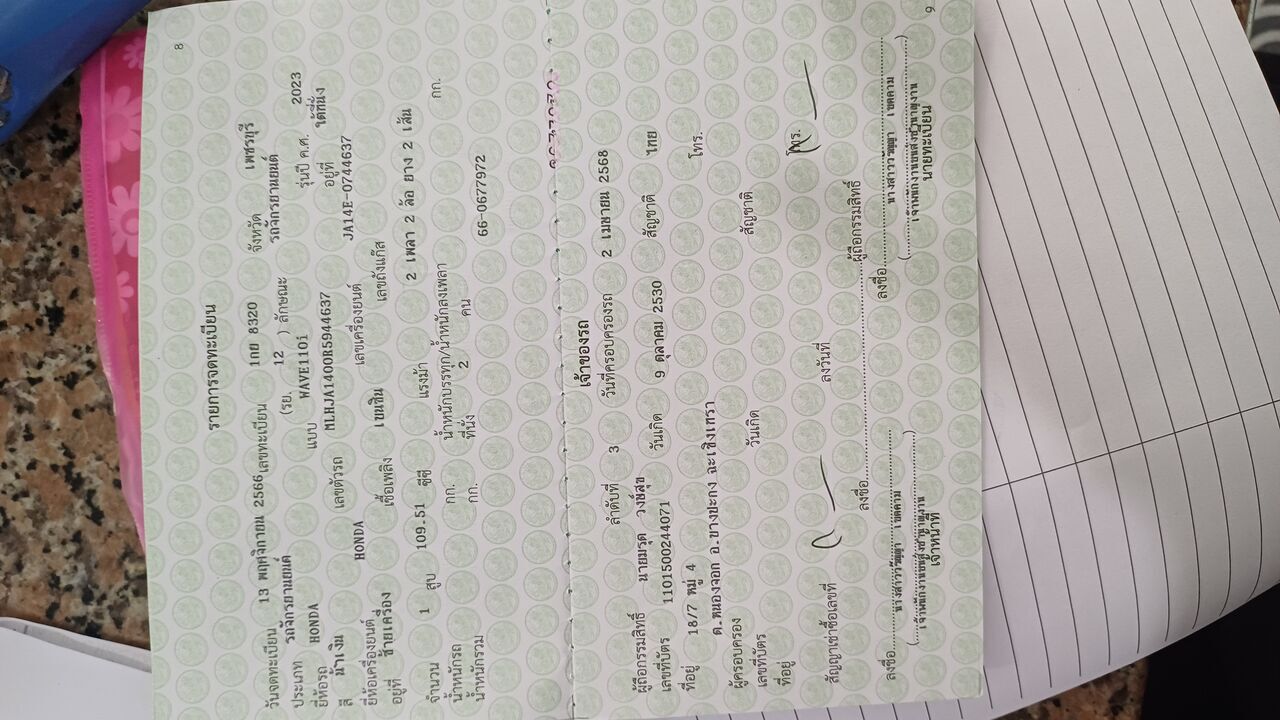 8
รายการจดทะเบียน
วันจดทะเบียน 13 พฤศจิกายน 2566 เลขทะเบียน 1กย 8320 จังหวัด เพชรบุรี
ประเภท รถจักรยานยนต์ (รย. 12 ) ลักษณะ รถจักรยานยนต์
ยี่ห้อรถ HONDA แบบ WAVE110i รุ่นปี ค.ศ. 2023
สี น้ำเงิน เลขตัวรถ MLHJA1400R5944637 อยู่ที่ ใต้ที่นั่ง
ยี่ห้อเครื่องยนต์ HONDA เลขเครื่องยนต์ JA14E-0744637
อยู่ที่ ซ้ายเครื่อง เชื้อเพลิง เบนซิน เลขถังแก๊ส
จำนวน 1 สูบ 109.51 ซีซี แรงม้า 2 เพลา 2 ล้อ ยาง 2 เส้น
น้ำหนักรถ กก. น้ำหนักบรรทุก/น้ำหนักลงเพลา กก.
น้ำหนักรวม กก. ที่นั่ง 2 คน 66-0677972
เจ้าของรถ
ลำดับที่ 3 วันที่ครอบครองรถ 2 เมษายน 2568
ผู้ถือกรรมสิทธิ์ นายมรุต วงษ์สุข
เลขที่บัตร 1101500244071 วันเกิด 9 ตุลาคม 2530 สัญชาติ ไทย
ที่อยู่ 18/7 หมู่ 4 โทร.
ต.หนองจอก อ.บางปะกง ฉะเชิงเทรา
ผู้ครอบครอง
เลขที่บัตร วันเกิด สัญชาติ
ที่อยู่ โทร.
สัญญาเช่าซื้อเลขที่ ลงวันที่
ลงชื่อ ผู้ถือกรรมสิทธิ์
ลงชื่อ ลงชื่อ
เจ้าหน้าที่ นายทะเบียน
9